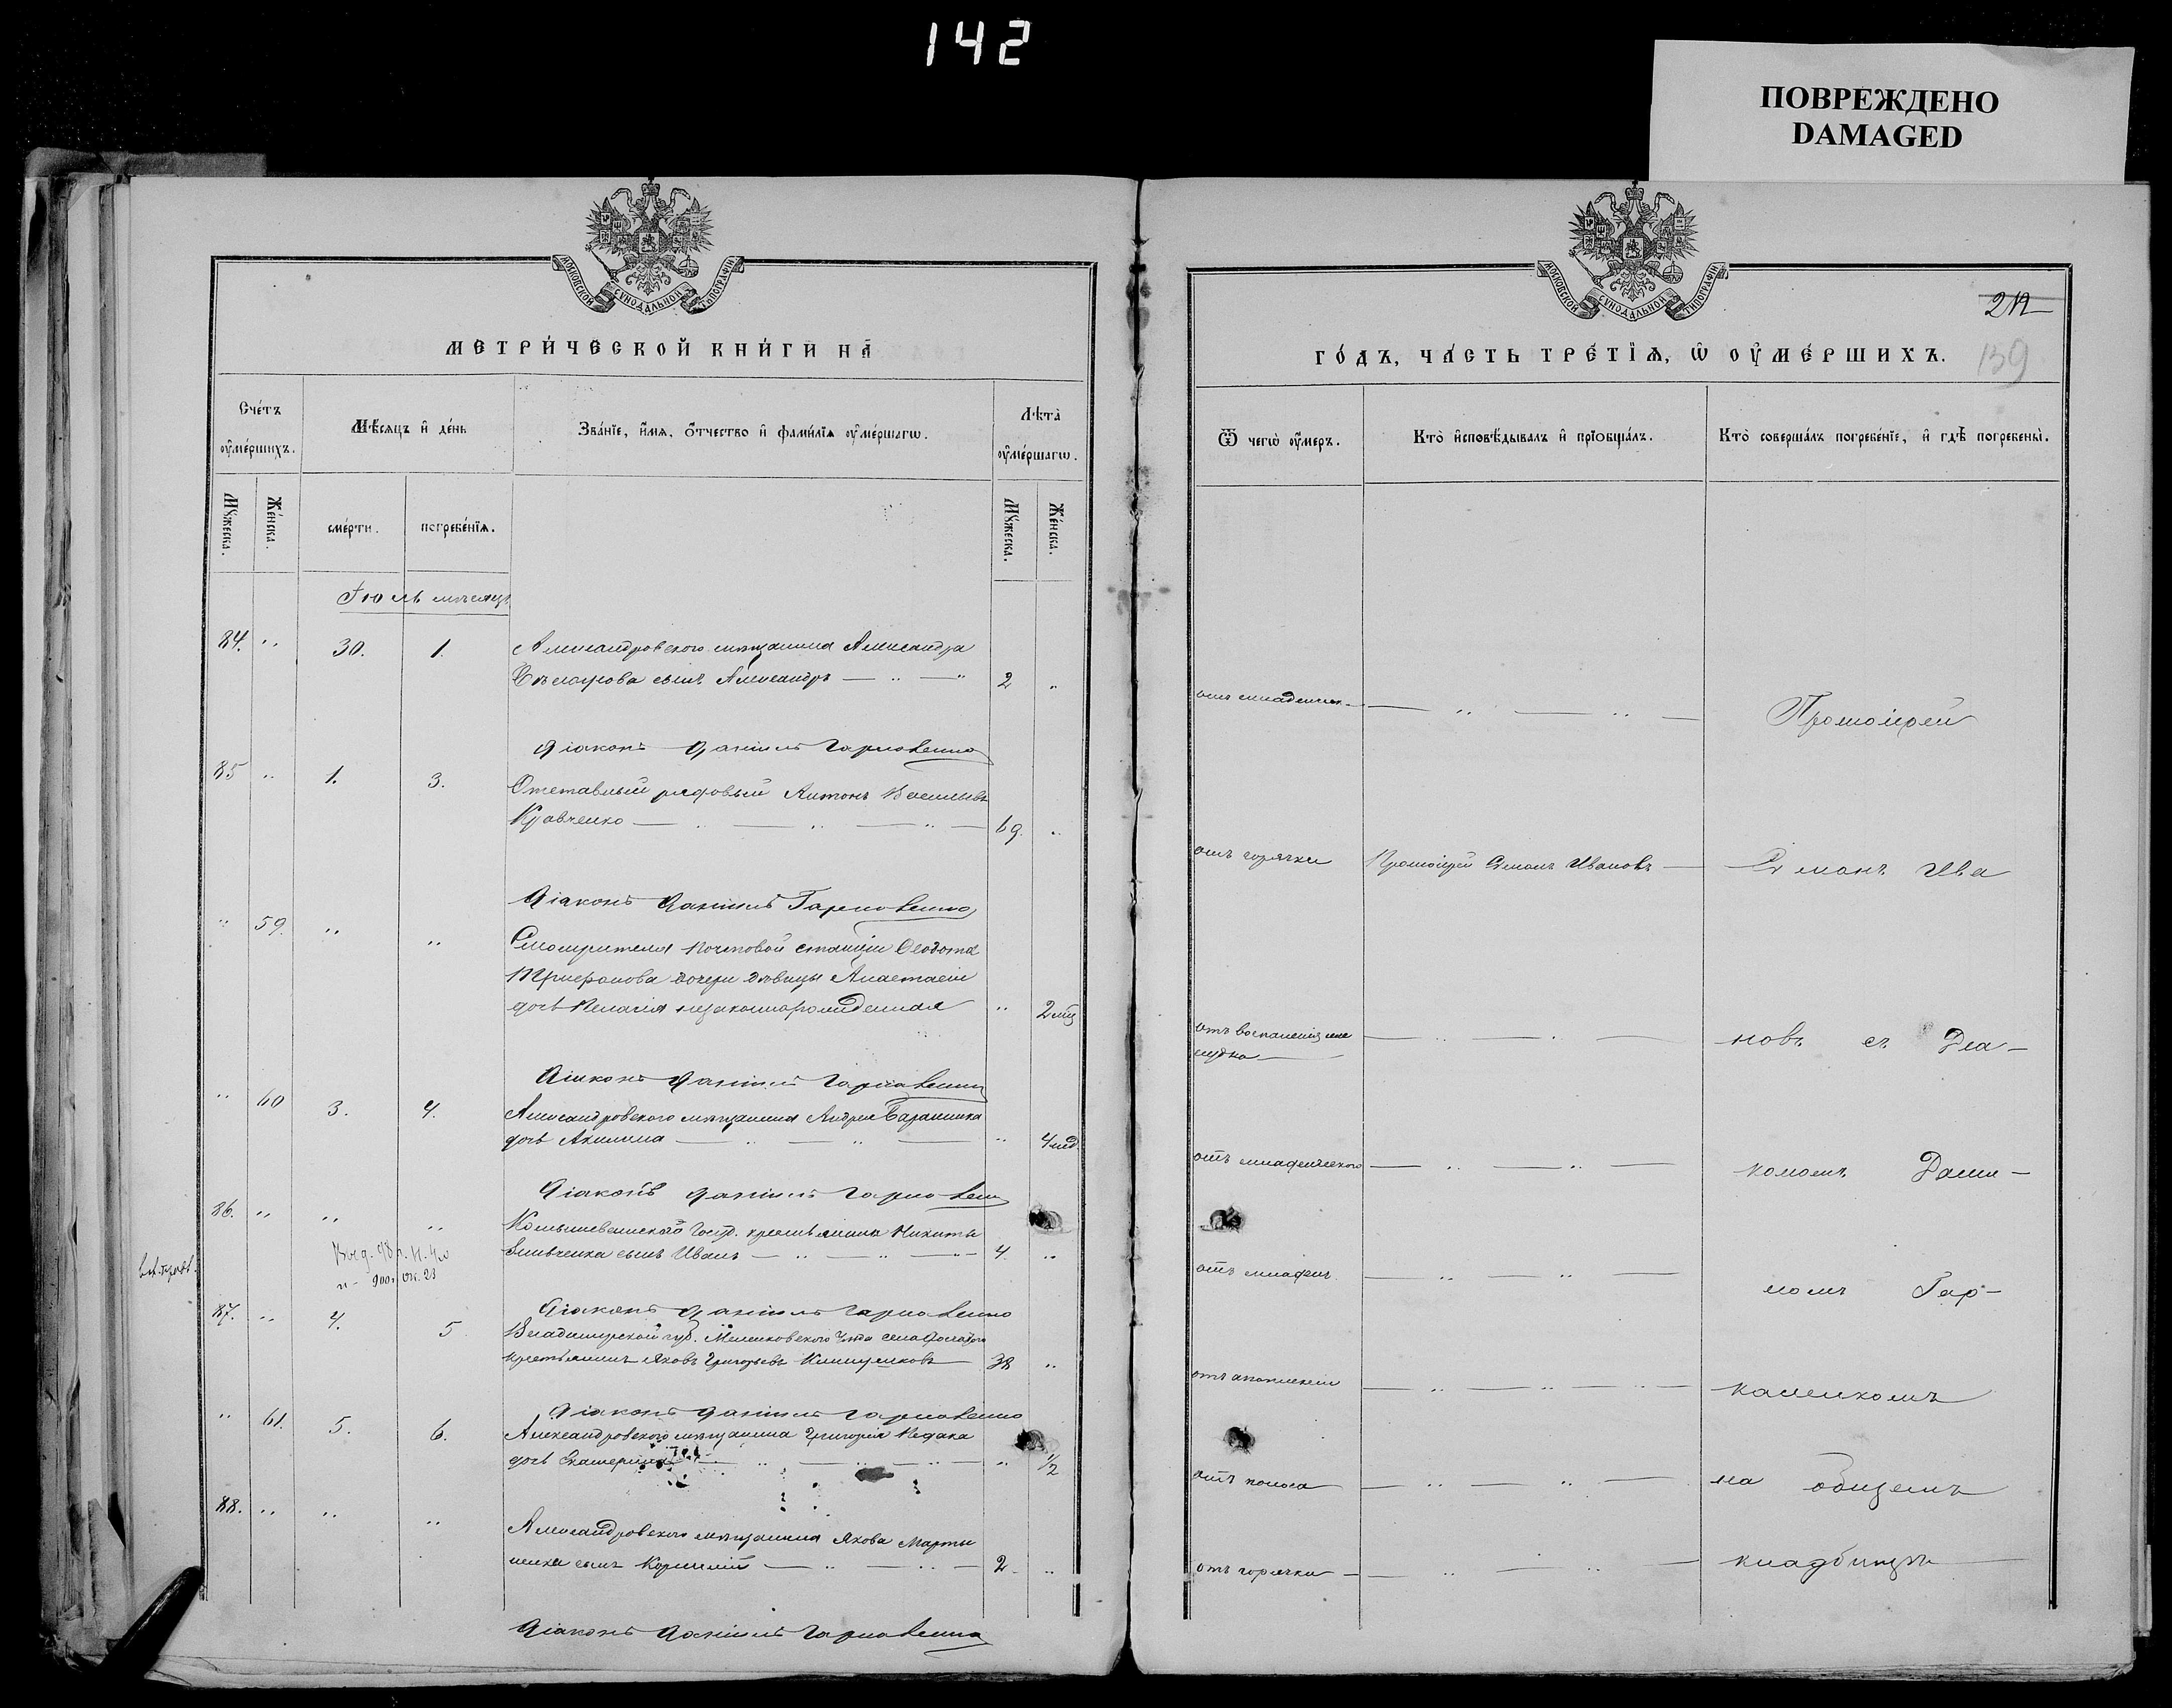 142
ПОВРЕЖДЕНО
DAMAGED
МОСКОВСКОЙ СѴНОДАЛЬНОЙ ТИПОГРАФІИ
МЕТРИ́ЧЕСКОЙ КНИ́ГИ НА̀
Сче́тъ ᲂу҆ме́ршихъ.
Мѣ́сяцъ и҆ де́нь
Зва́нїе, и҆́мѧ, ѻ҆́тчество и҆ фамі́лїѧ ᲂу҆ме́ршагѡ.
Лѣта̀ ᲂу҆ме́ршагѡ.
Мꙋ́жеска.
Же́нска.
сме́рти.
погребе́нїѧ.
Мꙋ́жеска.
Же́нска.
Іюль мѣсяцъ
84. " 30. 1. Александровского мѣщанина Александра
сынъ Александръ — " — " 2 "
Діаконъ Даніилъ Гармовенко
85 " 1. 3. Отставный рядовый Антонъ Васильевъ
Кравченко — " — " — " — 69. "
Діаконъ Даніилъ Гармовенко
" 59. " " Смотрителя почтовой станціи Ѳеодота
Трифонова дочери дѣвицы Анастасіи
дочь Пелагія незаконнорожденная " 2 мц
Діаконъ Даніилъ Гармовенко
" 60 3. 4. Александровского мѣщанина Андрея Баранника
дочь Акилина — " — " — " 4 нед.
Діаконъ Даніилъ Гармовенко
86. " " " госуд. крестьянина Никиты
сынъ Иванъ — " — " — " 4. "
Выд. 98 г. N. 40
и - 900 г. 23
87. " 4. 5 Владимирской губ. Меленковского уѣзда села
крестьянинъ Яковъ Григорьевъ — 38 "
Діаконъ Даніилъ Гармовенко
" 61. 5. 6. Александровского мѣщанина Григорія Педака
дочь Екатерина — " — " — " — " 1/2
88. " " " Александровского мѣщанина Якова Марты
ненка сынъ Корнилій — " — " — 2 - "
Діаконъ Даніилъ Гармовенко
МОСКОВСКОЙ СѴНОДАЛЬНОЙ ТИПОГРАФІИ
212
139
ГО́ДЪ, ЧА́СТЬ ТРЕ́ТЇѦ, Ѡ҆ ОУ҆МЕ́РШИХЪ.
Ѿ чегѡ̀ ᲂу҆́меръ.
Кто̀ и҆сповѣ́дывалъ и҆ прїѡбща́лъ.
Кто̀ соверша́лъ погребе́нїе, и҆ гдѣ̀ погребены̀.
отъ младенчес. — " — " — Протоіерей
отъ горячки Протоіерей Симонъ Ивановъ — Симонъ Ива
отъ воспаленія же
лудка — — " — " — новъ съ Діа-
отъ младенческого — " — " — кономъ Дани-
отъ младенч. — " — " — ломъ Гар-
отъ апоплексіи — " — " — " — каленкомъ
отъ поноса — " — " — на общемъ
отъ горячки — " — " — кладбищѣ